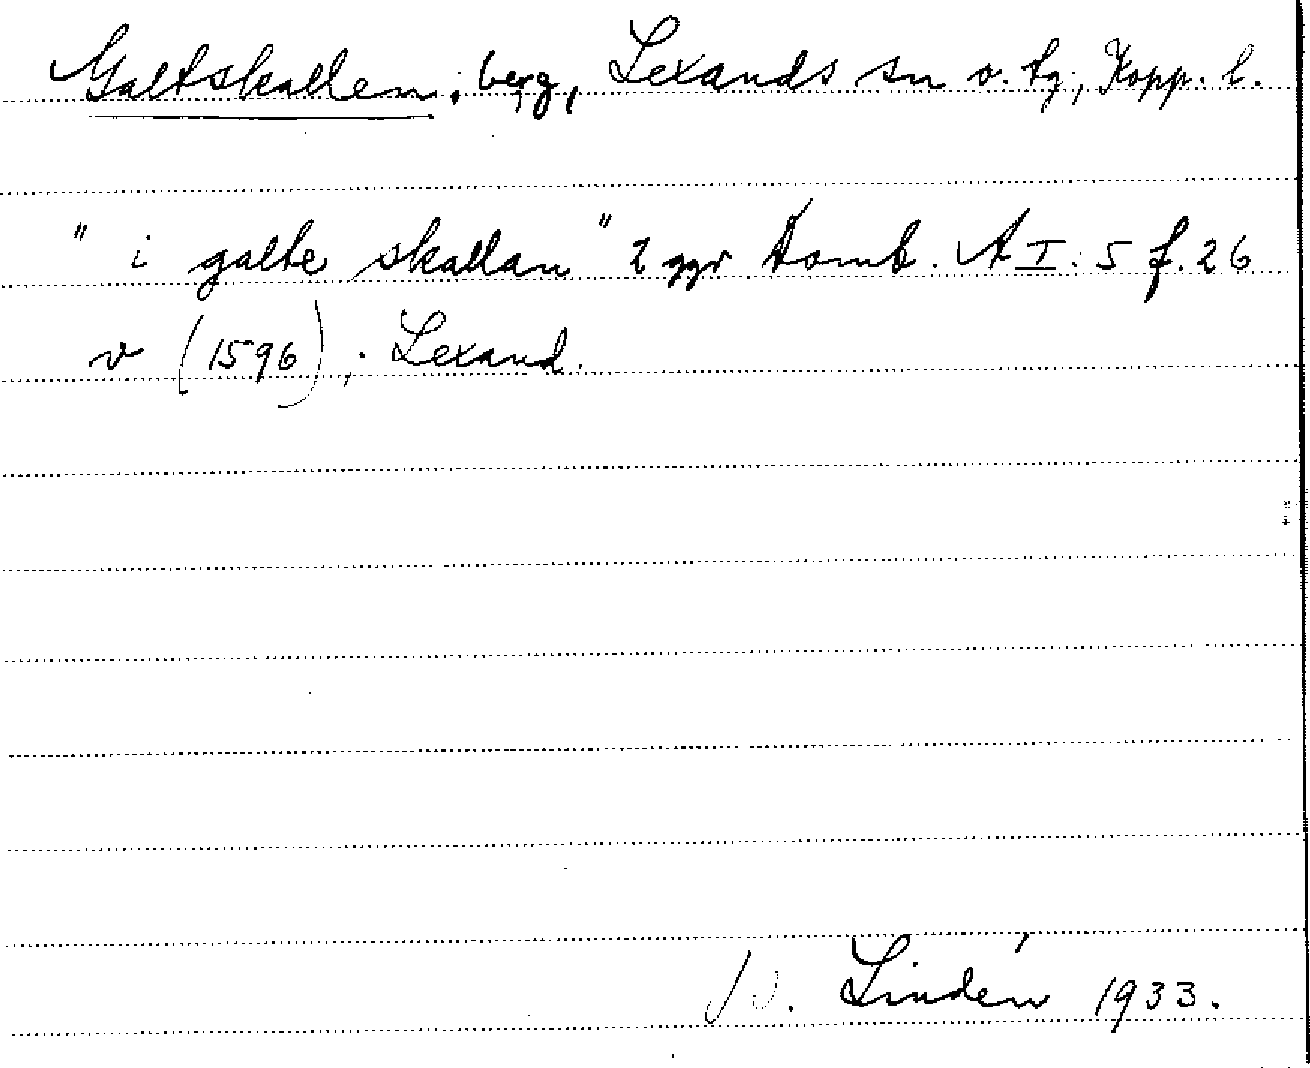 Galtskallen, berg, Lexands sn o. tg, Kopp. l.
"i galte skallan" 2 ggr Domb. A I. 5 f. 26
v (1596); Lexand.
B. Lindén 1933.